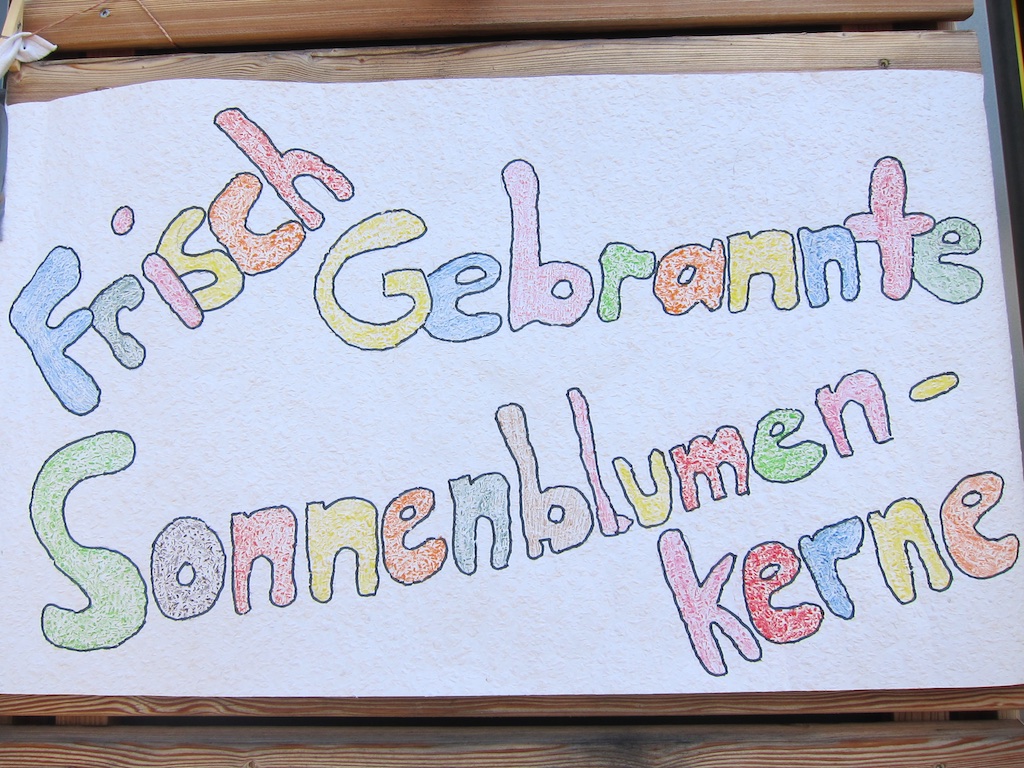 Frisch Gebrannte
Sonnenblumen-
kerne